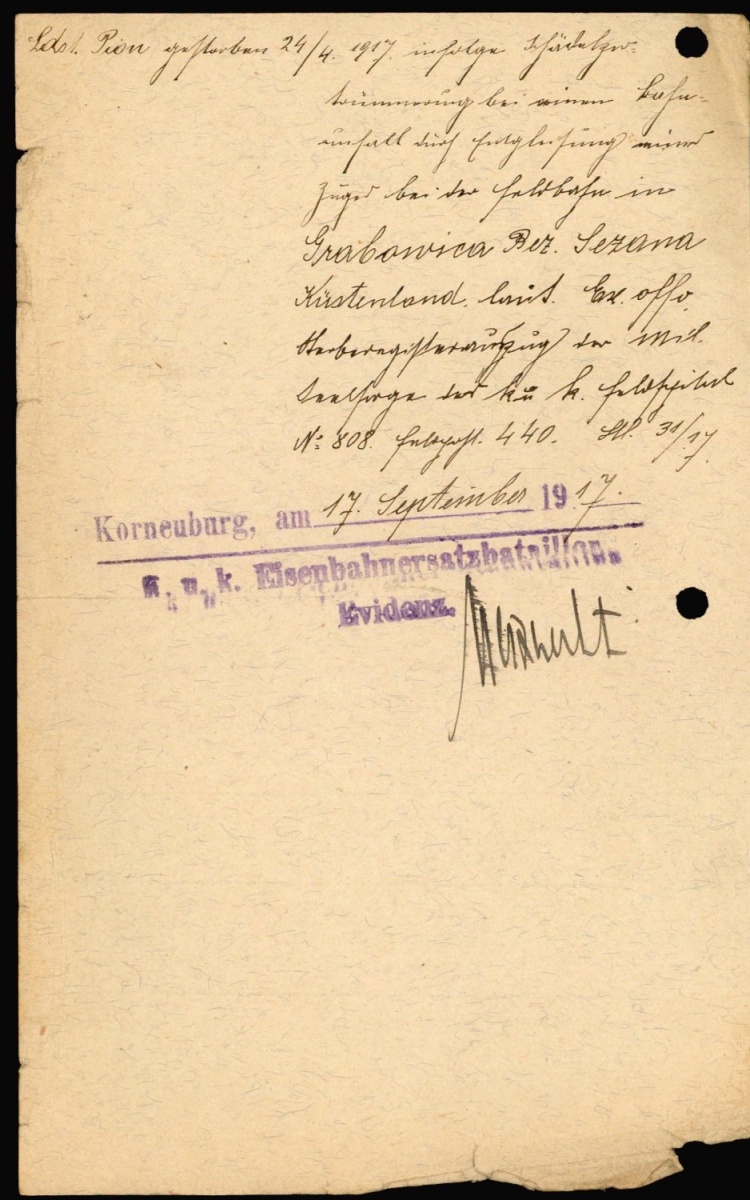 Ldst. Pion gestorben 24/4. 1917. infolge Schädelzer-
trümmerung bei einem Bahn-
unfall durch Entgleisung eines
Zuges bei der Feldbahn in
Grabowica Bez. Sezana
Küstenland. laut. Ex. offo
Sterberegisterauszug der Mil.
Seelsorge des k u k. Feldspital
No: 808. Feldpost. 440. 31/17.
Korneuburg, am 17. September 1917.
K. u. k. Eisenbahnersatzbataillon.
Evidenz.